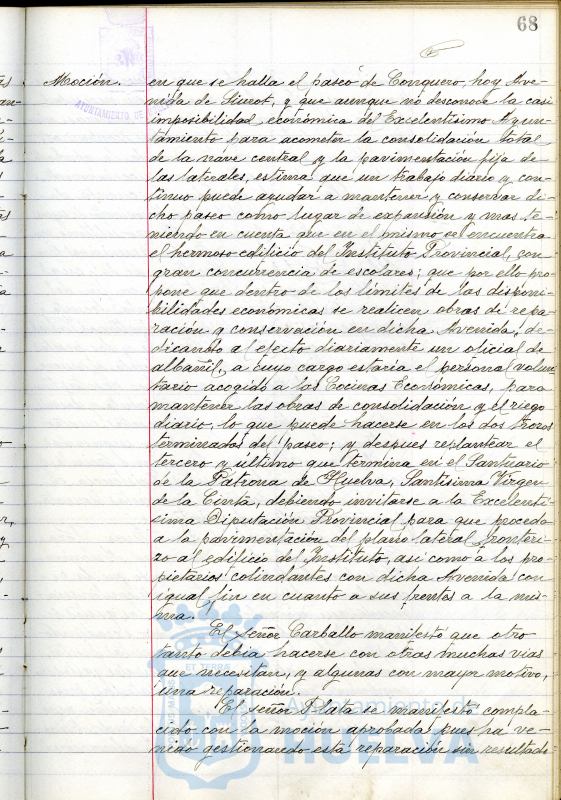 68
Moción.
en que se halla el paseo de Conquero hoy Ave-
nida de Siurot, y que aunque no desconoce la casi
imposibilidad económica del Excelentísimo Ayun-
tamiento para acometer la consolidación total
de la nave central y la pavimentación fija de
las laterales, estima que un trabajo diario y con-
tínuo puede ayudar a mantener y conservar di-
cho paseo como lugar de expansión y mas te-
niendo en cuenta que en el mismo se encuentra
el hermoso edificio del Instituto Provincial, con
gran concurrencia de escolares; que por ello pro-
pone que dentro de los límites de las disponi-
bilidades economicas se realicen obras de repa-
ración y conservación en dicha Avenida, de-
dicando al efecto diariamente un oficial de
albañil, a cuyo cargo estaria el personal volun-
tario acogido a las Cocinas Económicas, para
mantener las obras de consolidación y el riego
diario, lo que puede hacerse en los dos trozos
terminados del paseo; y despues replantear el
tercero y último que termina en el Santuario
de la Patrona de Huelva, Santísima Virgen
de la Cinta, debiendo invitarse a la Excelentí-
sima Diputación Provincial para que proceda
a la pavimentación del plano lateral fronteri-
zo al edificio del Instituto, asi como a los pro-
pietarios colindantes con dicha Avenida con
igual fin en cuanto a sus frentes a la mis-
ma.
El señor Carballo manifestó que otro
tanto debia hacerse con otras muchas vias
que necesitan, y algunas con mayor motivo,
una reparación.
El señor Plata se manifestó compla-
cido con la moción aprobada pues ha ve-
nido gestionando esta reparación sin resultado
AYUNTAMIENTO DE
Ayuntamiento de
HUELVA